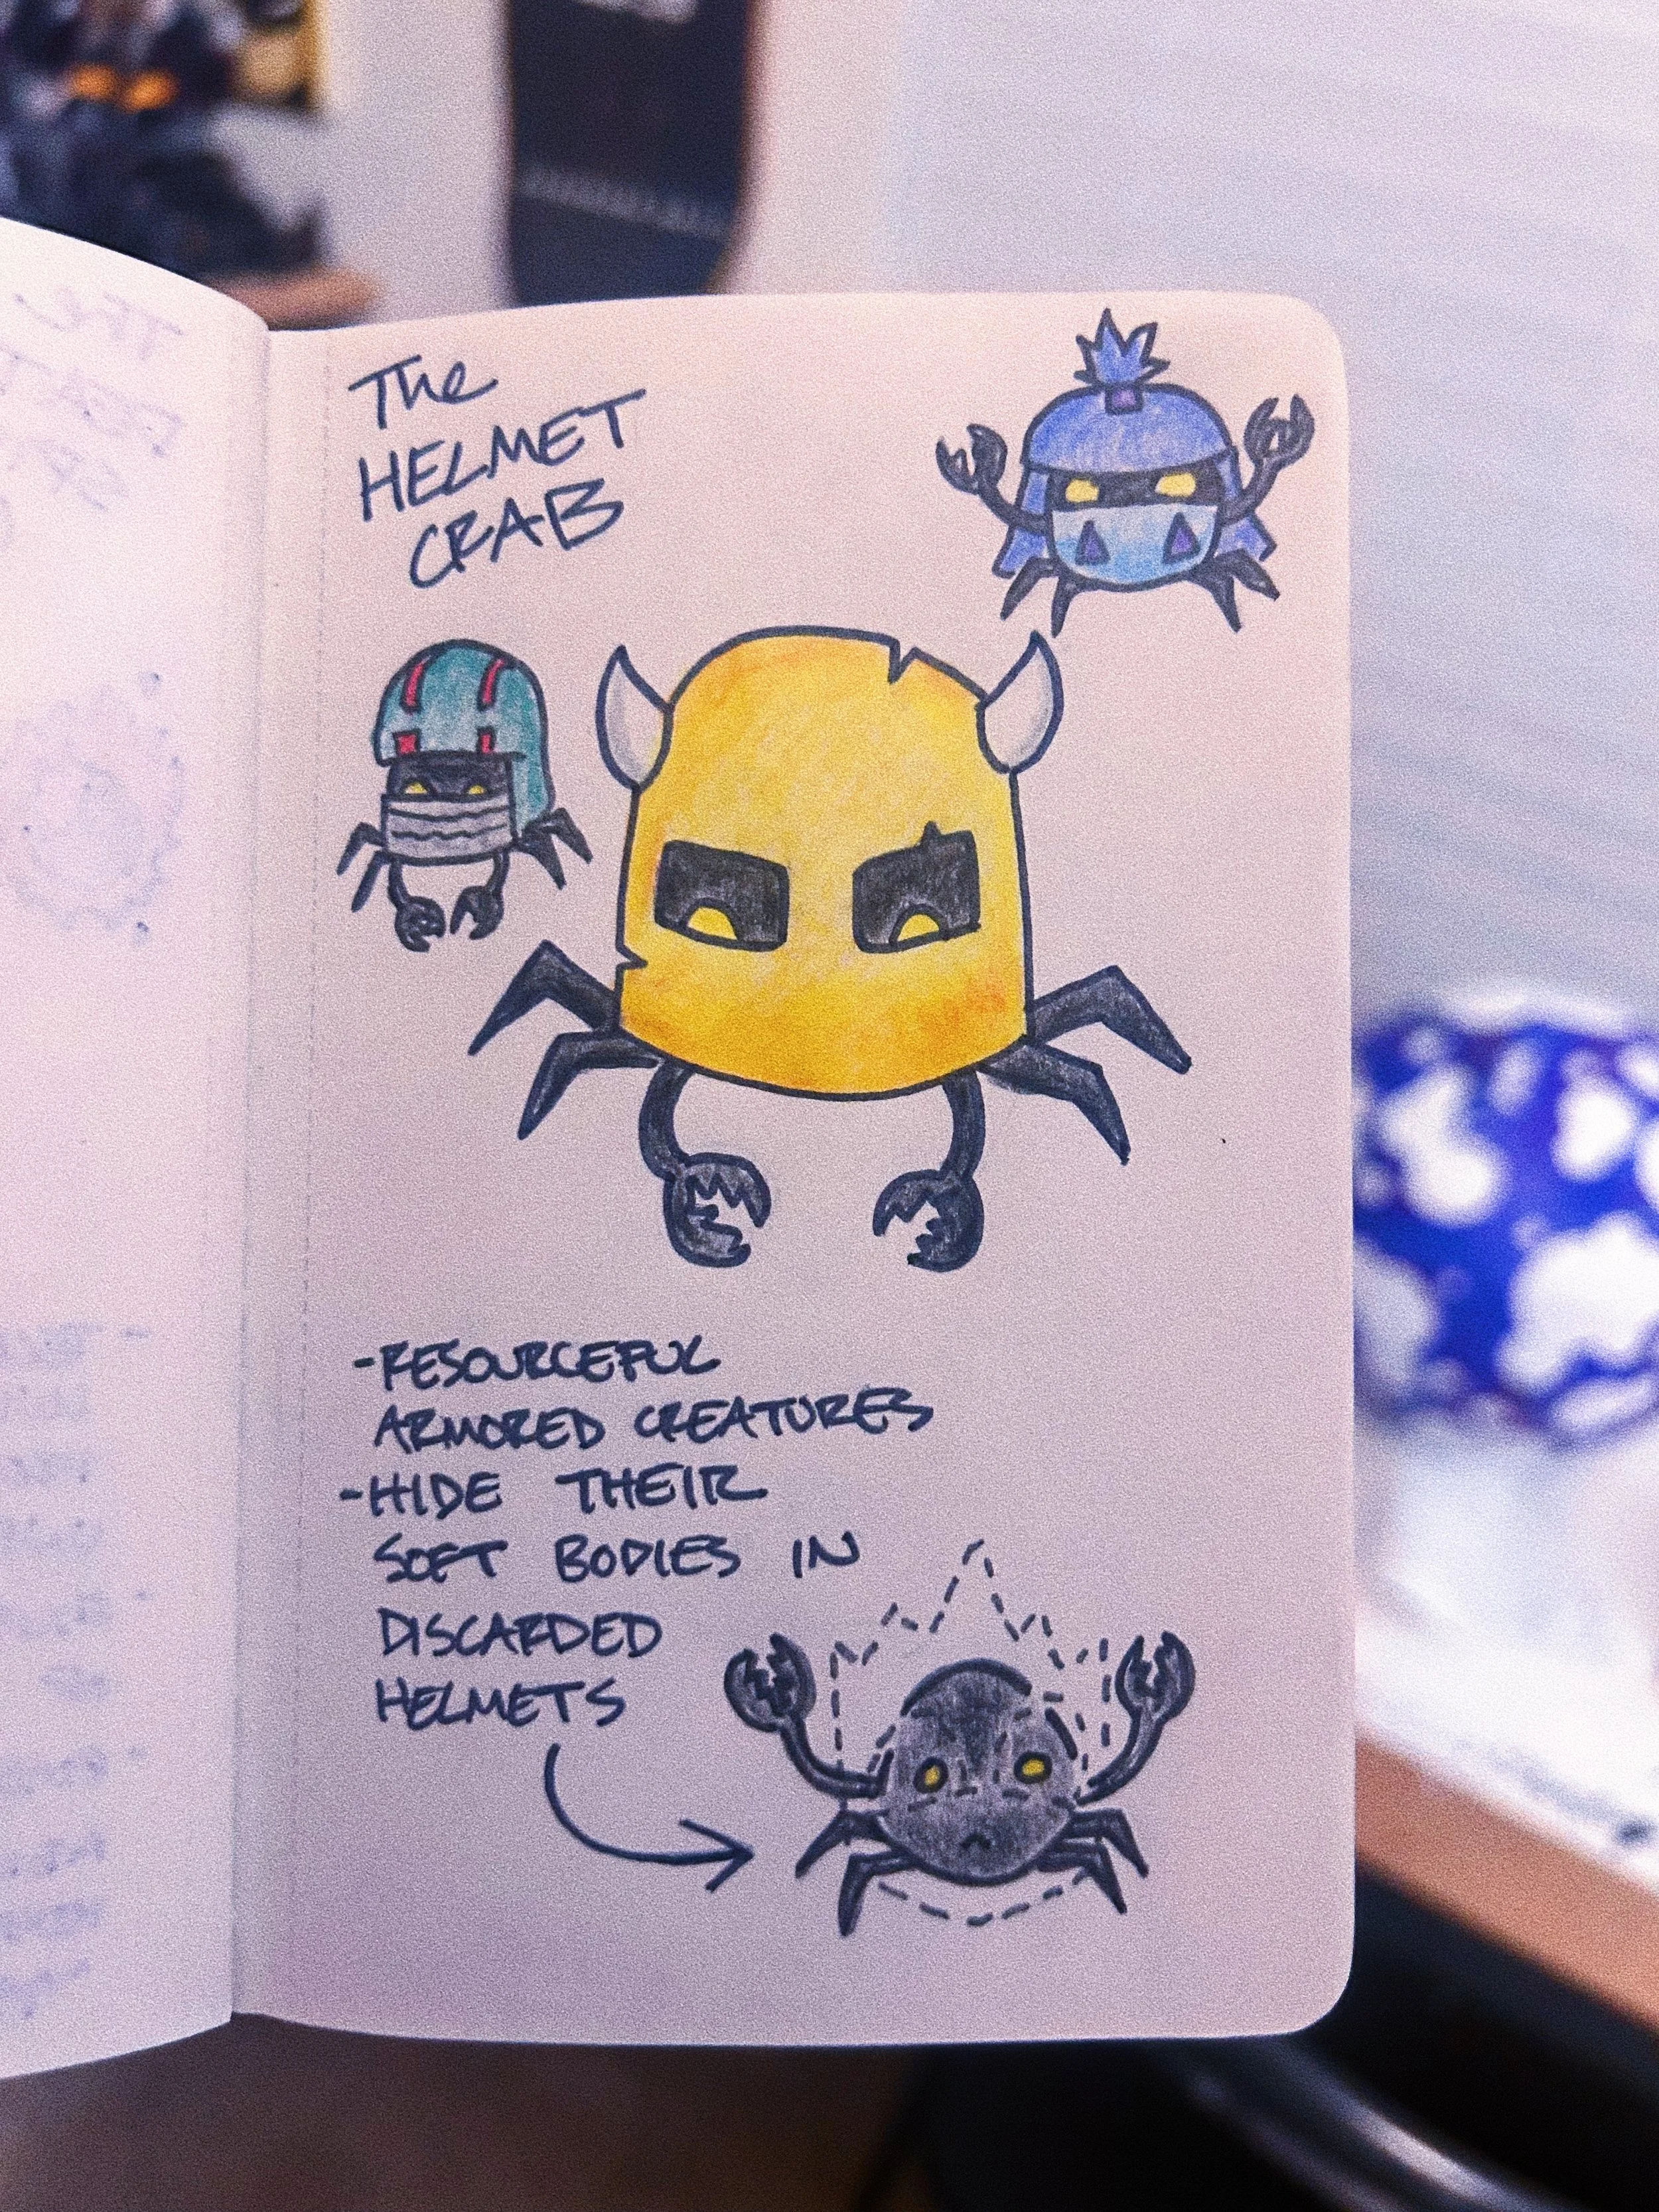 The
HELMET
CRAB
-RESOURCEFUL
ARMORED CREATURES
-HIDE THEIR
SOFT BODIES IN
DISCARDED
HELMETS